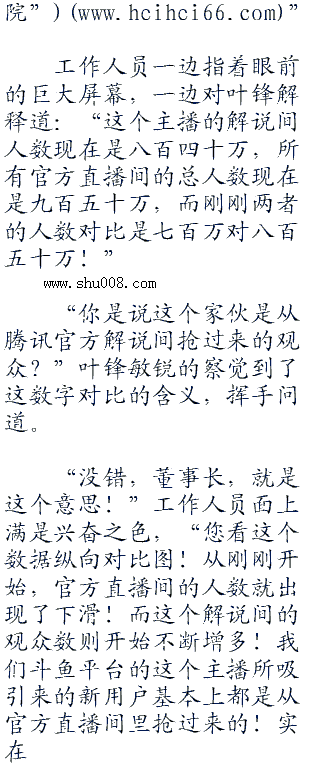 院”）(www.hcihci66.com)”
工作人员一边指着眼前
的巨大屏幕，一边对叶锋解
释道：“这个主播的解说间
人数现在是八百四十万，所
有官方直播间的总人数现在
是九百五十万，而刚刚两者
的人数对比是七百万对八百
五十万！”
www.shu008.com
“你是说这个家伙是从
腾讯官方解说间抢过来的观
众？”叶锋敏锐的察觉到了
这数字对比的含义，挥手问
道。
“没错，董事长，就是
这个意思！”工作人员面上
满是兴奋之色，“您看这个
数据纵向对比图！从刚刚开
始，官方直播间的人数就出
现了下滑！而这个解说间的
观众数则开始不断增多！我
们斗鱼平台的这个主播所吸
引来的新用户基本上都是从
官方直播间里抢过来的！实
在